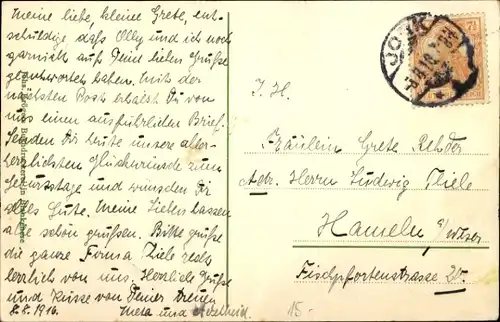 Meine liebe, kleine Grete, ent-
schuldige daß Olly und ich noch
garnicht auf Deine lieben Grüße
geantwortet haben. Mit der
nächsten Post erhälst Du von
uns einen ausführlichen Brief.
Senden Dir heute unsere aller-
herzlichsten Glückwünsche zum
Geburtstage und wünschen Dir
alles Gute. Meine Lieben lassen
alle schön grüßen. Bitte grüße
die ganze Firma Thiele recht
herzlich von uns. Herzliche Grüße
und Küsse von Deiner treuen
8.8.1916. Meta und Adelheid.
I. H.
Fräulein Grete
Adr. Herrn Ludwig Thiele
Hameln a/Weser
Fischpfortenstrasse 20.
15.-